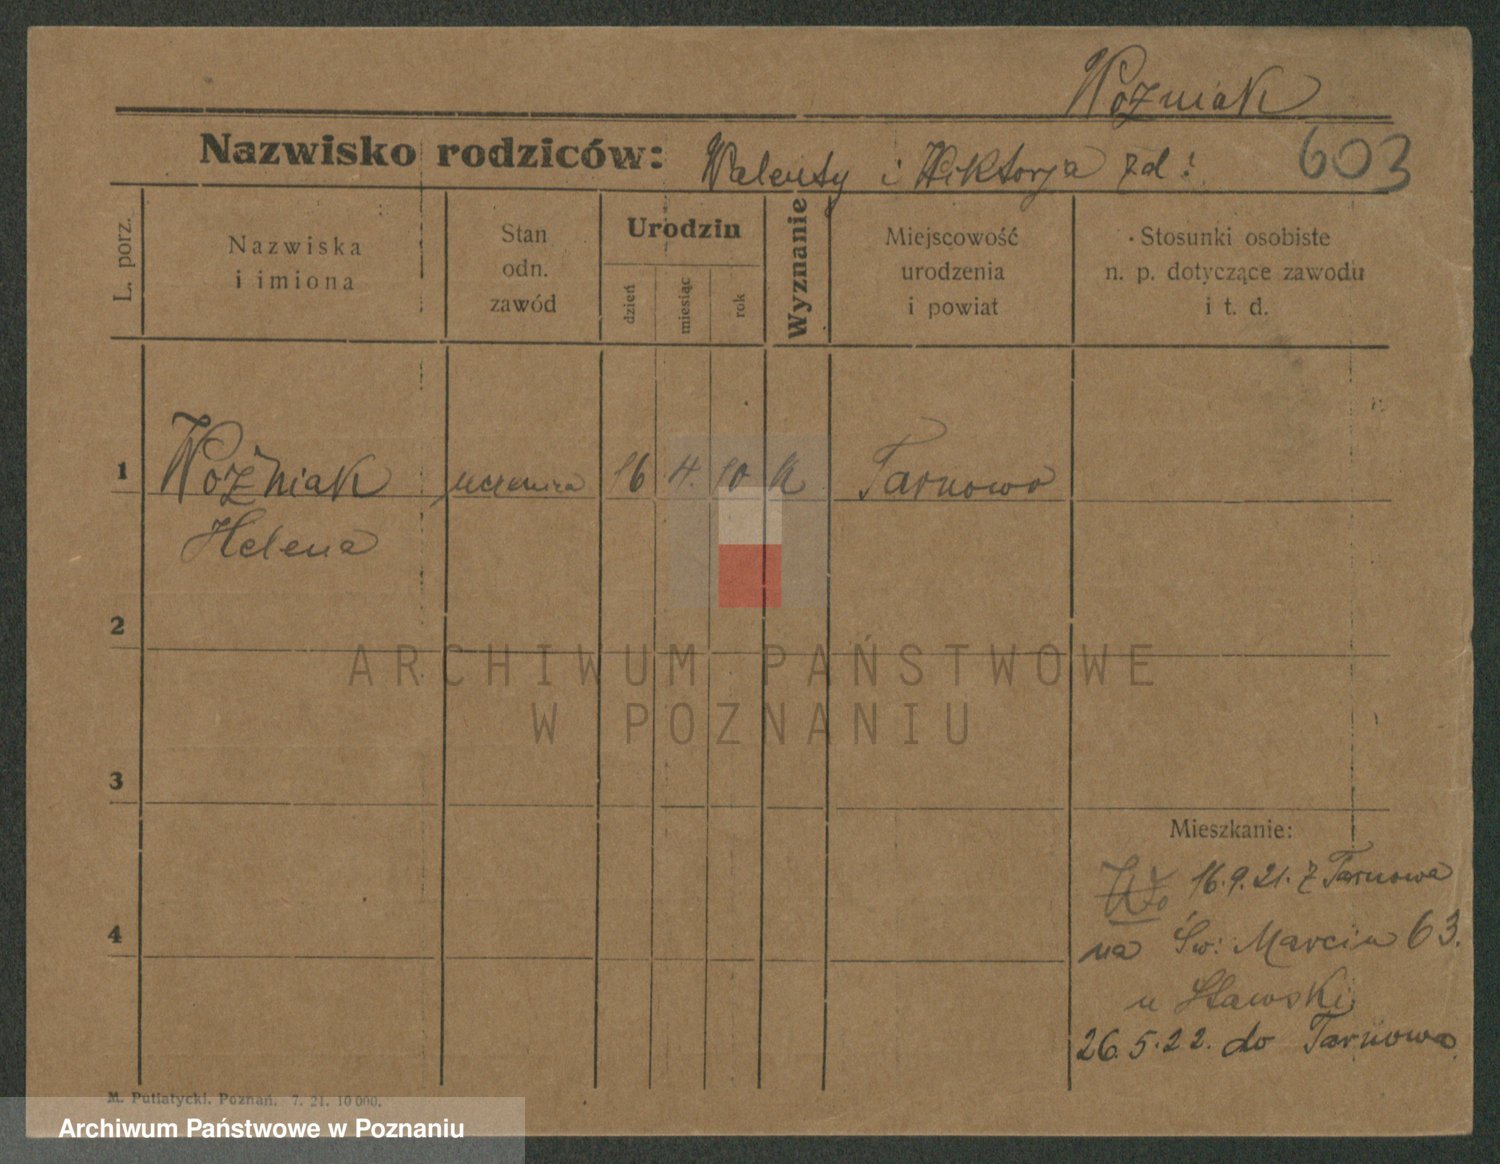 Woźniak
Nazwisko rodziców: Walenty i Wiktorja zd:
603
L. porz.
Nazwiska i imiona
Stan odn. zawód
Urodzin
dzień
miesiąc
rok
Wyznanie
Miejscowość urodzenia i powiat
Stosunki osobiste n. p. dotyczące zawodu i t. d.
1 Woźniak uczenica 16 4. 10 k Tarnowo
Helena
2
3
4
Mieszkanie:
16.9.21. z Tarnowa
na Św: Marcin 63.
u Stawski
26.5.22. do Tarnowa.
M. Putiatycki. Poznań. 7. 21. 10 000.
ARCHIWUM PAŃSTWOWE
W POZNANIU
Archiwum Państwowe w Poznaniu